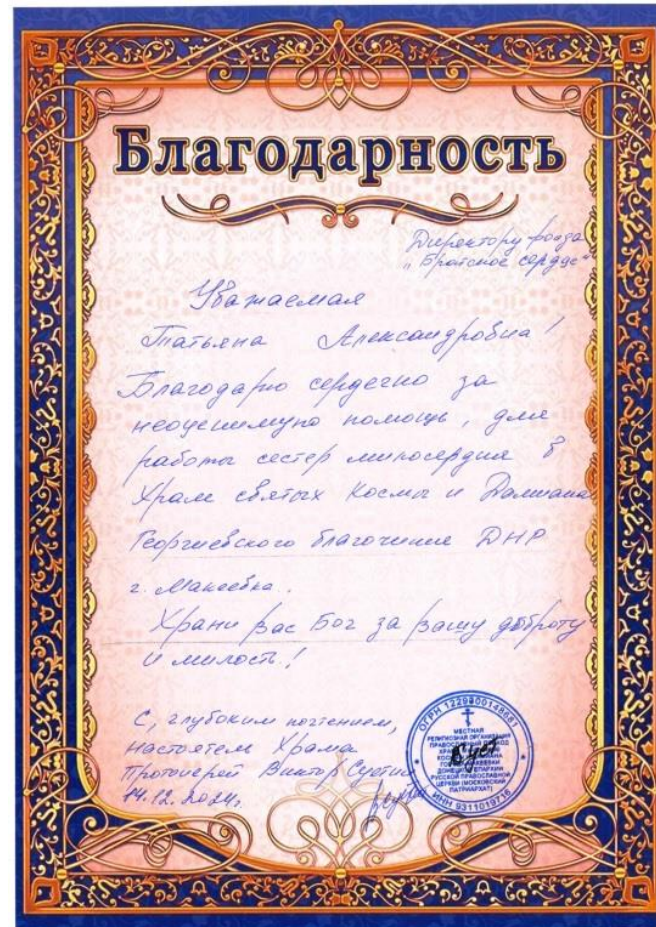 Благодарность
Директору фонда
"Братское сердце"
Уважаемая
Татьяна Александровна!
Благодарю сердечно за
неоценимую помощь, для
работы сестер милосердия в
Храме святых Космы и Дамиана
Георгиевского благочиние ДНР
г. Макеевка.
Храни вас Бог за вашу доброту
и милость!
С, глубоким почтением,
настоятель Храма
Протоиерей Виктор
14.12.2024г.
ОГРН 1229300148681
МЕСТНАЯ
РЕЛИГИОЗНАЯ ОРГАНИЗАЦИЯ
ПРАВОСЛАВНЫЙ ПРИХОД
ДОНЕЦКОЙ ЕПАРХИИ
РУССКОЙ ПРАВОСЛАВНОЙ
ЦЕРКВИ (МОСКОВСКИЙ
ПАТРИАРХАТ)
ИНН 9311019716